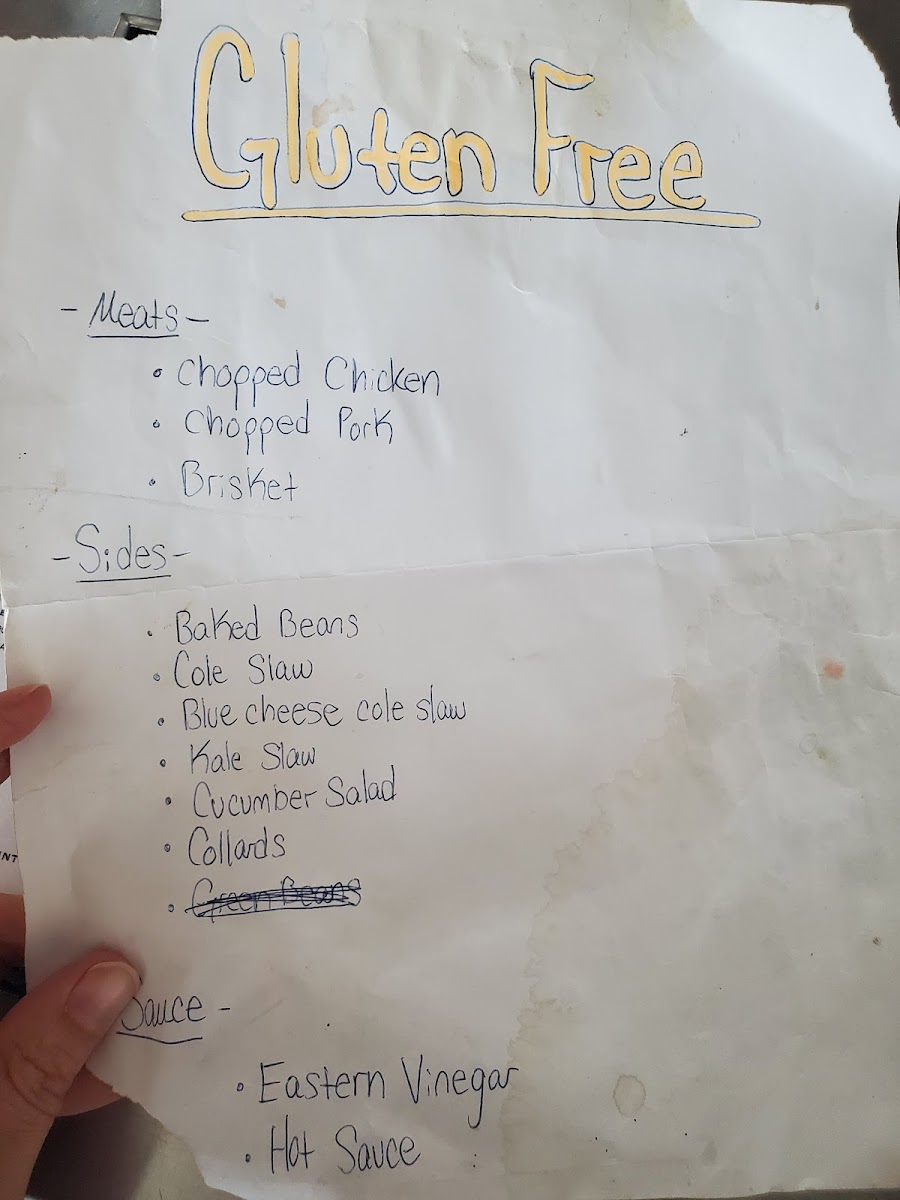 Gluten Free
- Meats -
• Chopped Chicken
• Chopped Pork
• Brisket
- Sides -
• Baked Beans
• Cole Slaw
• Blue cheese cole slaw
• Kale Slaw
• Cucumber Salad
• Collards
• Green Beans
Sauce -
• Eastern Vinegar
• Hot Sauce